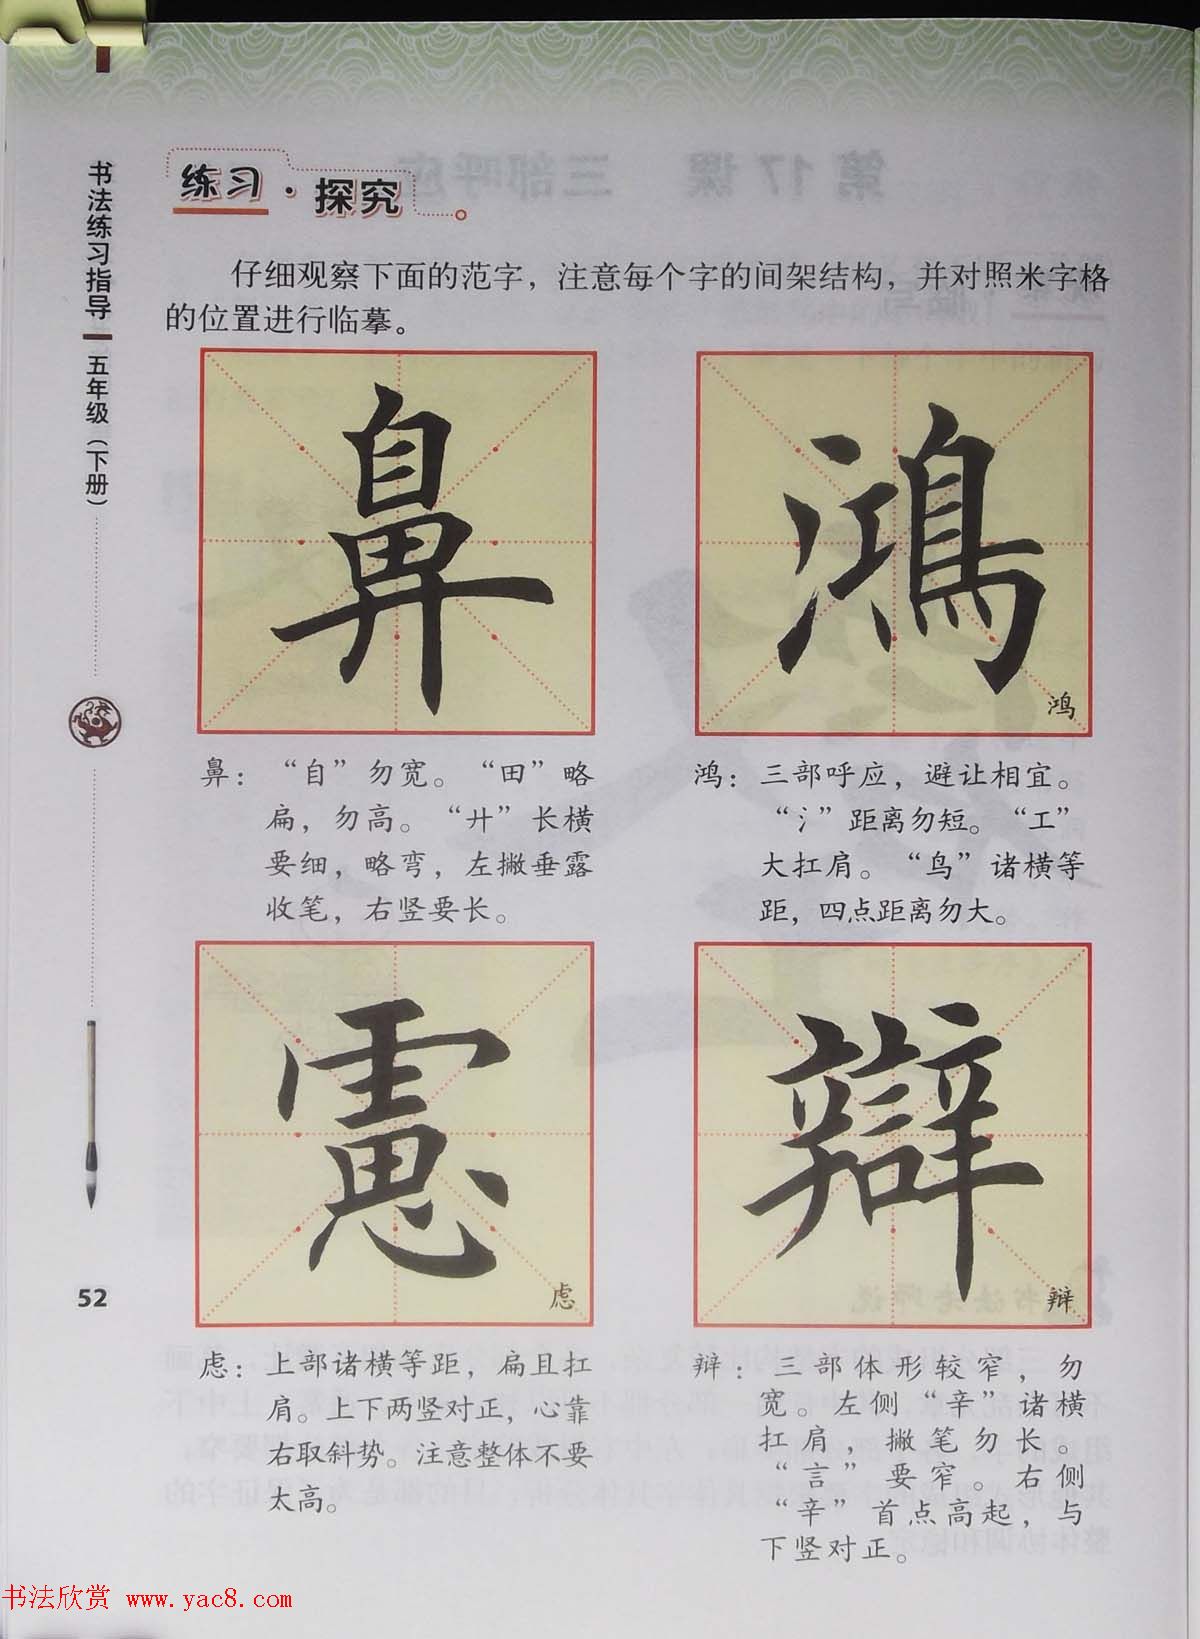 书法练习指导
五年级（下册）
52
练习·探究
仔细观察下面的范字，注意每个字的间架结构，并对照米字格
的位置进行临摹。
鼻
鼻：“自”勿宽。“田”略
扁，勿高。“廾”长横
要细，略弯，左撇垂露
收笔，右竖要长。
鴻
鸿
鸿：三部呼应，避让相宜。
“氵”距离勿短。“工”
大扛肩。“鸟”诸横等
距，四点距离勿大。
慮
虑
虑：上部诸横等距，扁且扛
肩。上下两竖对正，心靠
右取斜势。注意整体不要
太高。
辯
辩
辩：三部体形较窄，勿
宽。左侧“辛”诸横
扛肩，撇笔勿长。
“言”要窄。右侧
“辛”首点高起，与
下竖对正。
书法欣赏 www.yac8.com